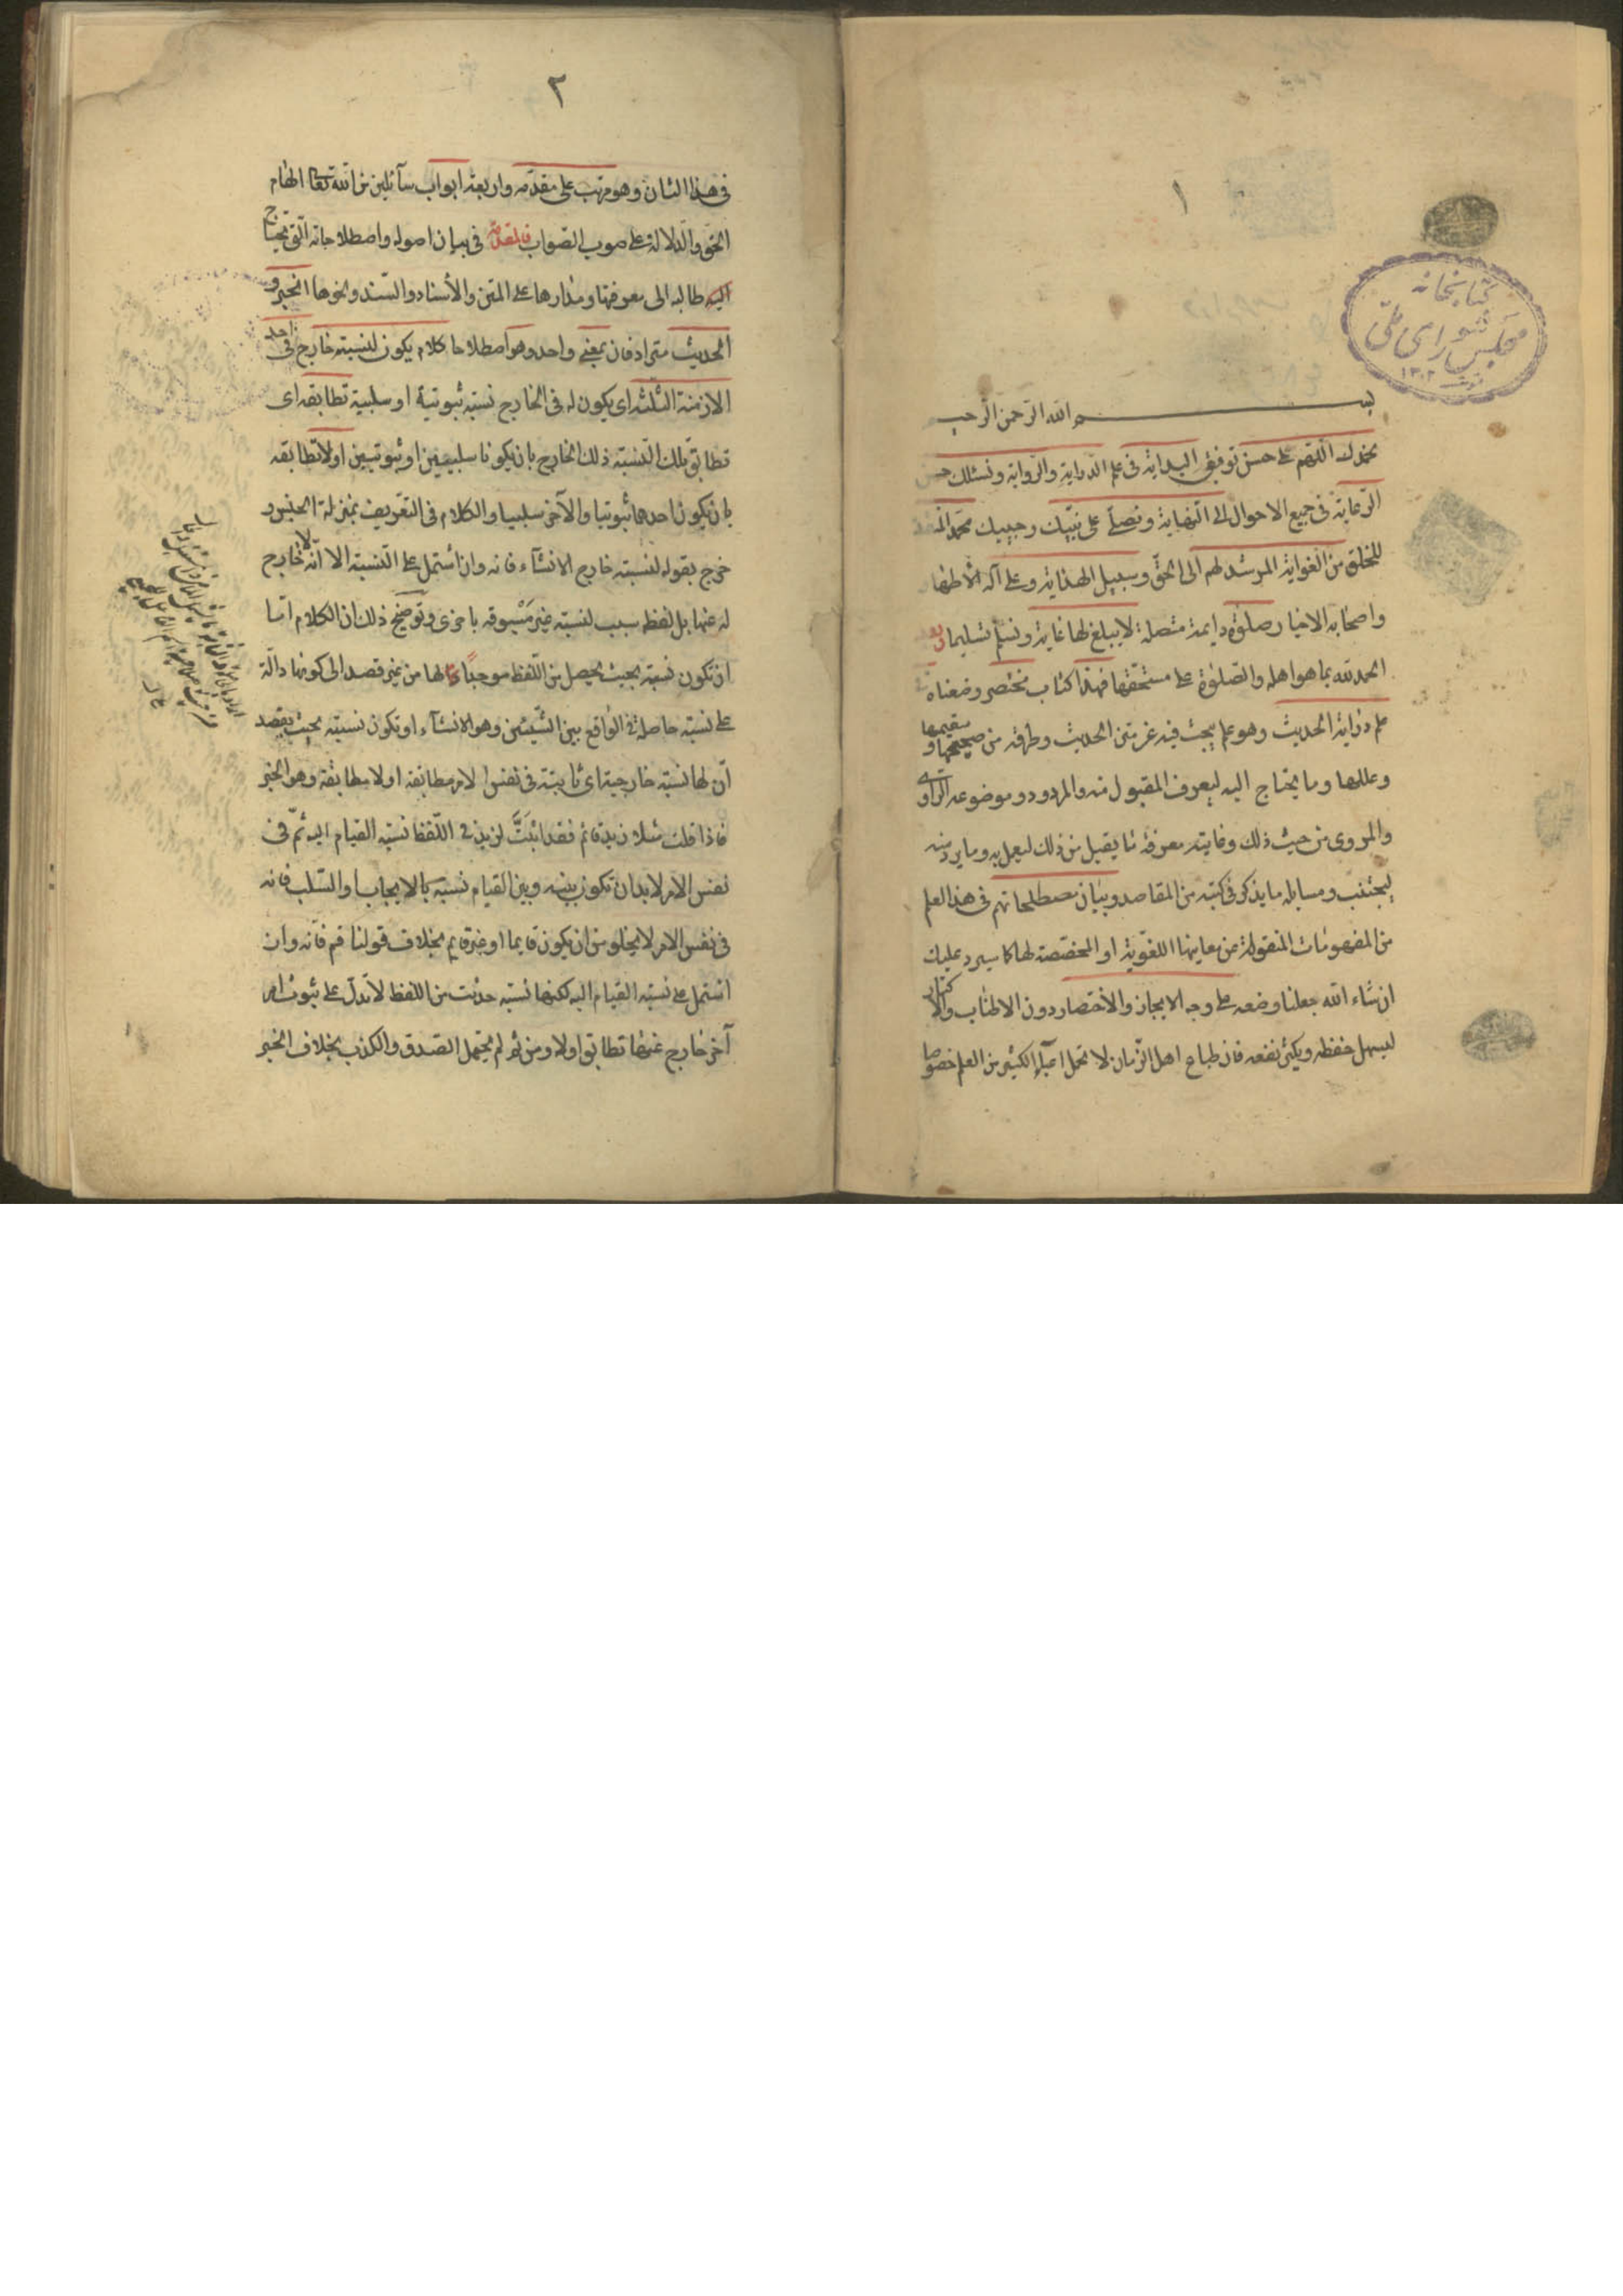 ١
كتابخانه
مجلس شورای ملی
١٣٠٢
بسم الله الرحمن الرحيم
نحمدك اللهم على حسن توفيق البداية فى علم الدراية والرواية ونسئلك حسن
الرعاية فى جميع الاحوال الى النهاية ونصلى على نبيك وحبيبك محمد المنقذ
للخلق من الغواية المرشد لهم الى الحق وسبيل الهداية وعلى آله الاطهار
واصحابه الاخيار صلوة دايمة متصلة لا يبلغ لها غاية ونسلم تسليما وبعد
الحمد لله بما هو اهله والصلوة على مستحقها فهذا كتاب مختصر وضعناه فى
علم دراية الحديث وهو علم يبحث فيه عن متن الحديث وطرقه من صحيحها وسقيمها
وعللها وما يحتاج اليه ليعرف المقبول منه والمردود وموضوعه الراوى
والمروى من حيث ذلك وغايته معرفة ما يقبل من ذلك ليعمل به وما يرد منه
ليجتنب ومسايله ما يذكر فى كتبه من المقاصد وبيان مصطلحاتهم فى هذا العلم
من المفهومات المنقولة عن معاينها اللغوية او المخصصة لها كما سيرد عليك
ان شاء الله جعلنا وضعه على وجه الايجاز والاختصار دون الاطناب والاكثار
ليسهل حفظه ويكثر نفعه فان طباع اهل الزمان لا تحمل اعباء الكثير من العلم خصوصا
٢
فى هذا الشان وهو مرتب على مقدمه واربعة ابواب سآئلين من الله تعالى الهام
الحق والدلالة على صوب الصواب فالمقدمة فى بيان اصوله واصطلاحاته التى يحتاج
اليه طالبه الى معرفتها ومدارها على المتن والاسناد والسند ونحوها الخبر و
الحديث مترادفان بمعنى واحد وهو اصطلاحا كلام يكون لنسبته خارج فى احد
الازمنة الثلثة اى يكون له فى الخارج نسبة ثبوتية او سلبية تطابقه اى
تطابق تلك النسبة ذلك الخارج بان يكونا سلبيين او ثبوتيين او لا تطابقه
بان يكون احدهما ثبوتيا والآخر سلبيا والكلام فى التعريف بمنزلة الجنس و
خرج بقوله لنسبته خارج الانشآء فانه وان اشتمل على النسبة الا انه لا خارج
له عنها بل لفظه سبب لنسبة غير مسبوقة باخرى وتوضيح ذلك ان الكلام اما
ان تكون نسبته بحيث يحصل من اللفظ موجبا لها من غير قصد الى كونها دالة
على نسبة حاصلة فى الواقع بين الشيئين وهو الانشآء او تكون نسبته بحيث يقصد
ان لها نسبة خارجية اى ثابتة فى نفس الامر مطابقة او لا مطابقة وهو الخبر
فاذا قلت مثلا زيد قائم فقد اثبت لزيد فى اللفظ نسبة القيام اليه ثم فى
نفس الامر لا بد ان تكون بينه وبين القيام نسبة بالايجاب او السلب فانه
فى نفس الامر لا يخلو من ان يكون قايما او غير قايم بخلاف قولنا قم فانه وان
اشتمل على نسبة القيام اليه لكنها نسبة حدثت من اللفظ لا تدل على ثبوت امر
آخر خارج عنها تطابق اولا ومن ثم لم يحتمل الصدق والكذب بخلاف الخبر